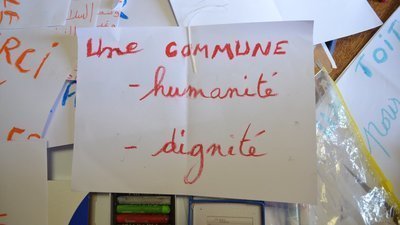 Une COMMUNE
- humanité
- dignité
RCI
TOIT
pour